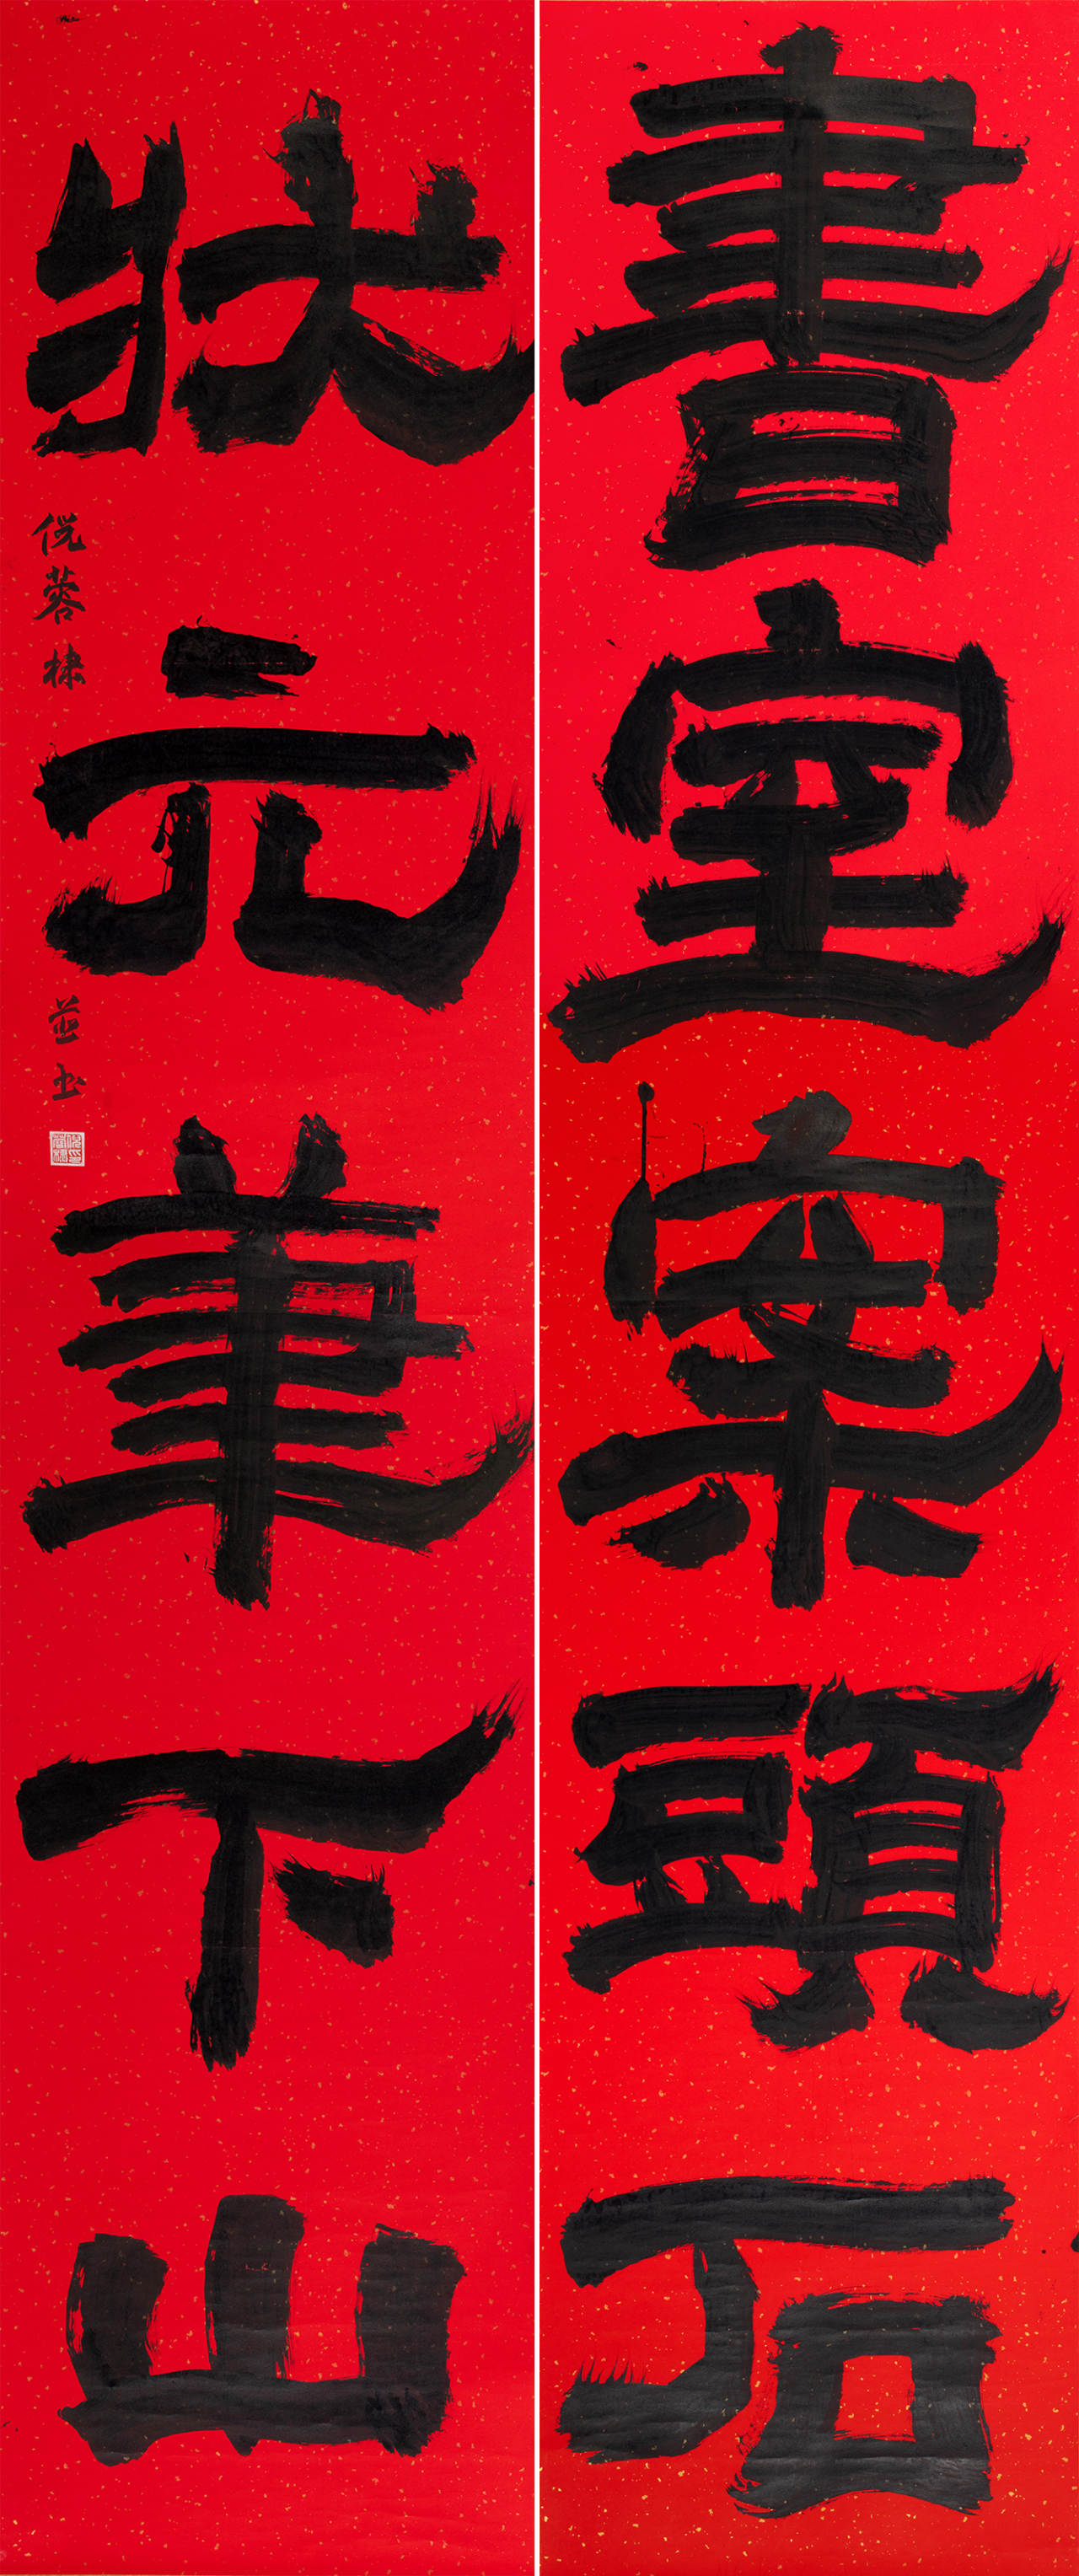 書室案頭石
狀元筆下山
倪蓉棣 並书